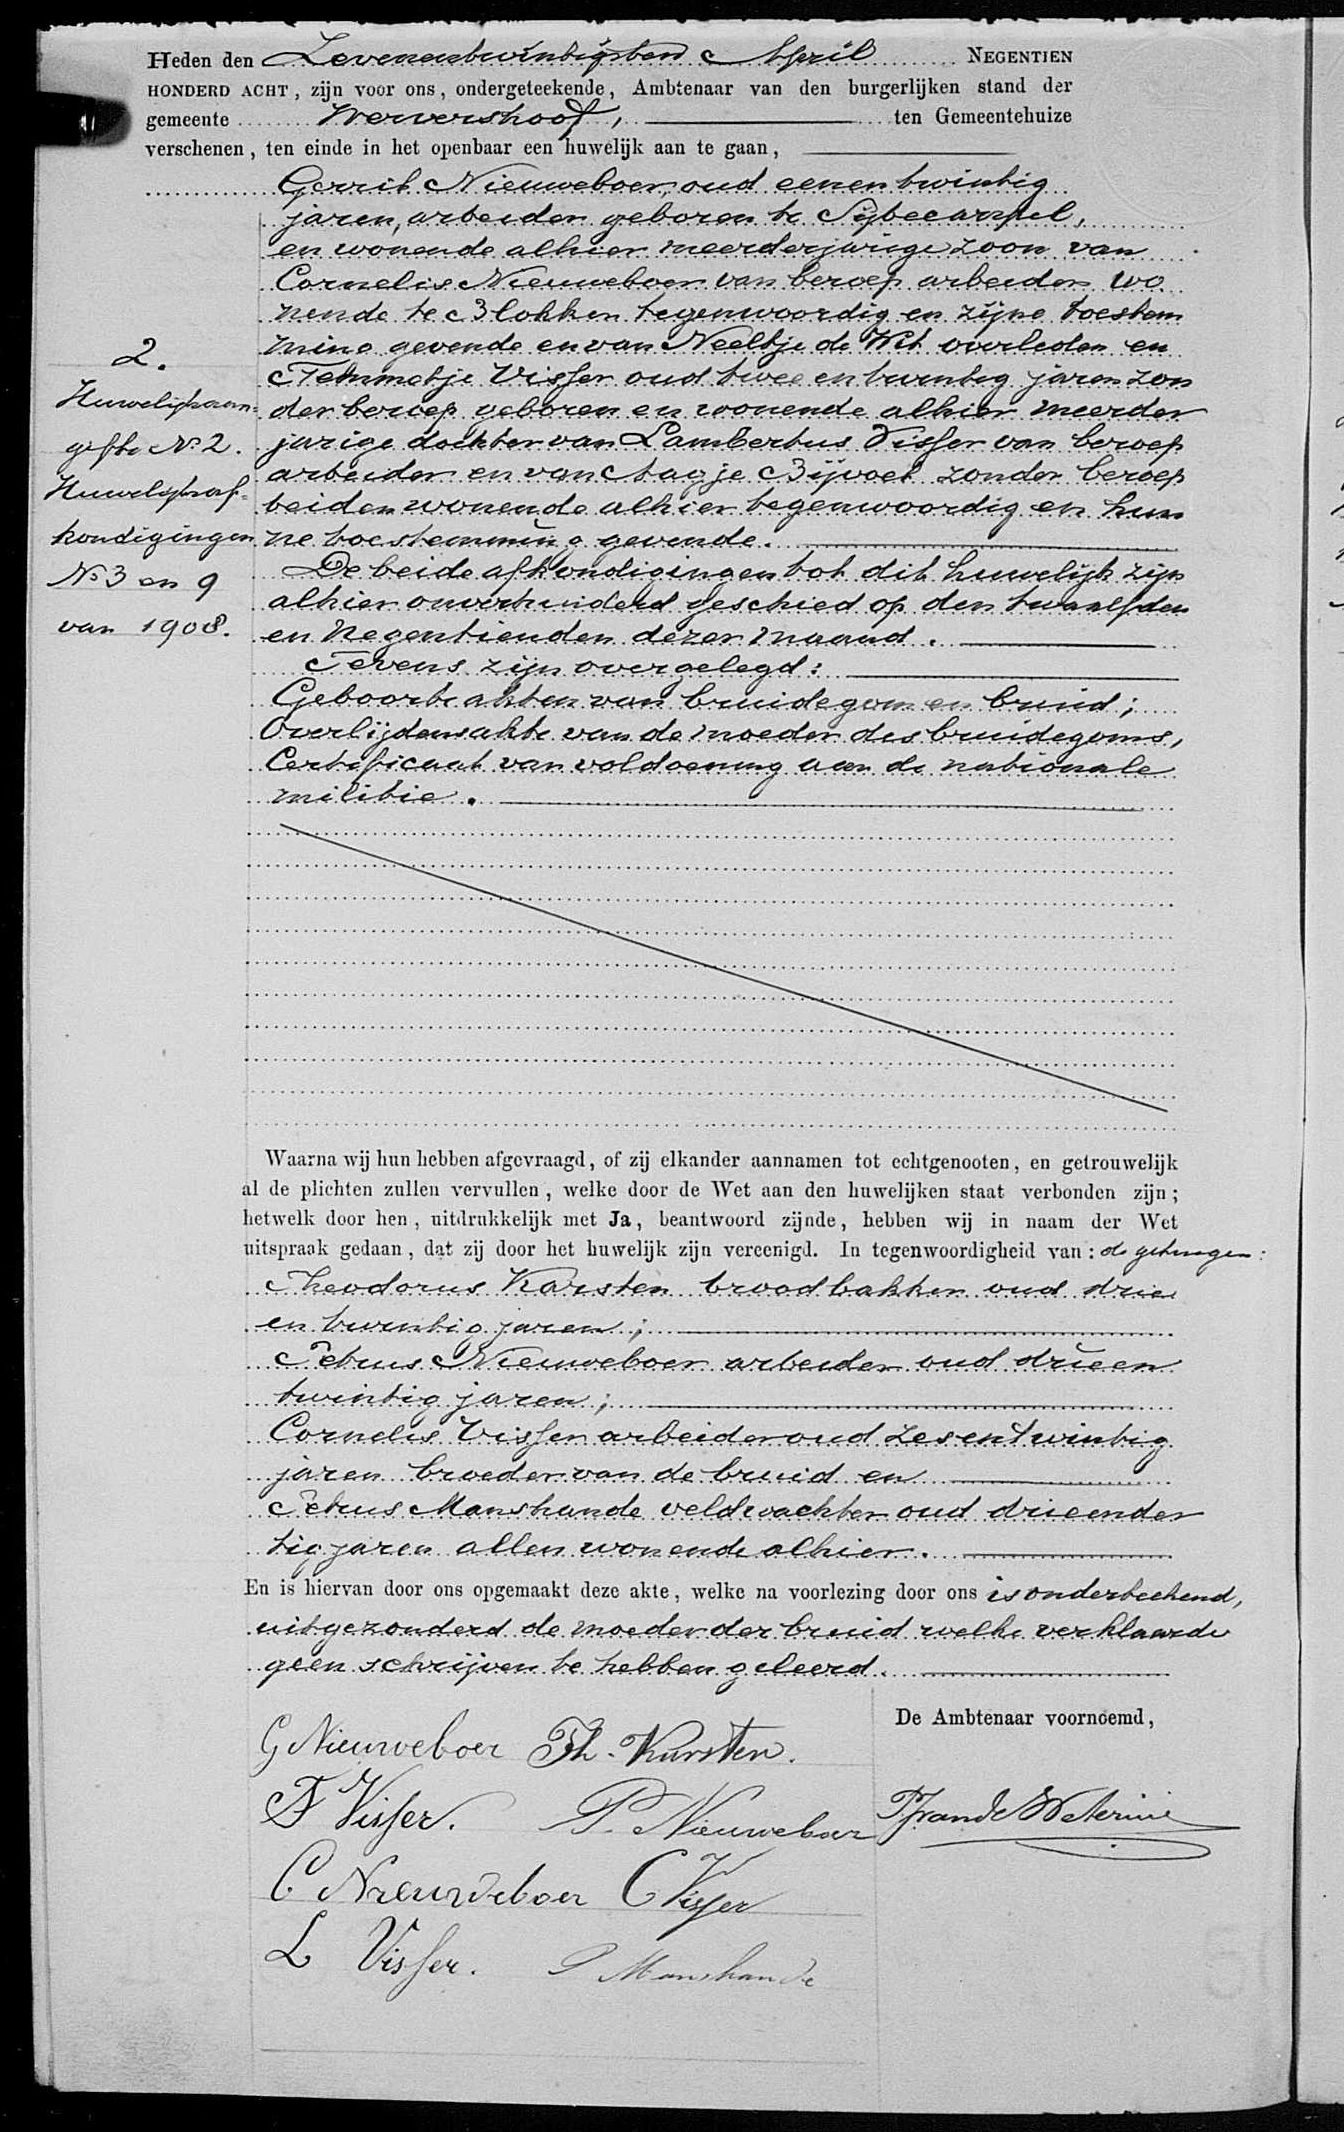 Heden den Zevenentwintigsten April NEGENTIEN
HONDERD ACHT, zijn voor ons, ondergeteekende, Ambtenaar van den burgerlijken stand der
gemeente Wervershoof, ten Gemeentehuize
verschenen, ten einde in het openbaar een huwelijk aan te gaan,
Gerrit Nieuweboer, oud eenen twintig
jaren, arbeider geboren te Sijbecarspel,
en wonende alhier meerderjarige zoon van
Cornelis Nieuweboer van beroep arbeider wo
nende te Blokker tegenwoordig en zijne toestem
ming gevende en van Neeltje de Wit overleden en
Temmetje Visser oud twee en twintig jaren zon
der beroep geboren en wonende alhier meerder
jarige dochter van Lambertus Visser van beroep
arbeider en van Aagje Bijvoet zonder beroep
beiden wonende alhier tegenwoordig en hun
ne toestemming gevende.
De beide afkondigingen tot dit huwelijk zijn
alhier onverhinderd geschied op den twaalfden
en negentienden dezer maand.
Tevens zijn overgelegd:
Geboorte akten van bruidegom en bruid;
Overlijdensakte van de moeder des bruidegoms,
Certificaat van voldoening aan de nationale
militie.
2.
Huwelijksaan-
gifte No 2.
Huwelijksaf-
kondigingen
No 3 en 9
van 1908.
Waarna wij hun hebben afgevraagd, of zij elkander aannamen tot echtgenooten, en getrouwelijk
al de plichten zullen vervullen, welke door de Wet aan den huwelijken staat verbonden zijn;
hetwelk door hen, uitdrukkelijk met Ja, beantwoord zijnde, hebben wij in naam der Wet
uitspraak gedaan, dat zij door het huwelijk zijn vereenigd. In tegenwoordigheid van: de getuigen:
Theodorus Karsten broodbakker oud drie
en twintig jaren;
Petrus Nieuweboer arbeider oud drieen
twintig jaren;
Cornelis Visser arbeider oud zesentwintig
jaren broeder van de bruid en
Petrus Manshande veldwachter oud drieender
tig jaren allen wonende alhier.
En is hiervan door ons opgemaakt deze akte, welke na voorlezing door ons is onderteekend,
uitgezonderd de moeder der bruid welke verklaarde
geen schrijven te hebben geleerd.
De Ambtenaar voornoemd,
G Nieuweboer Th. Karsten.
T Visser. P. Nieuweboer
C. Nieuweboer C Visser
L Visser. P Manshande